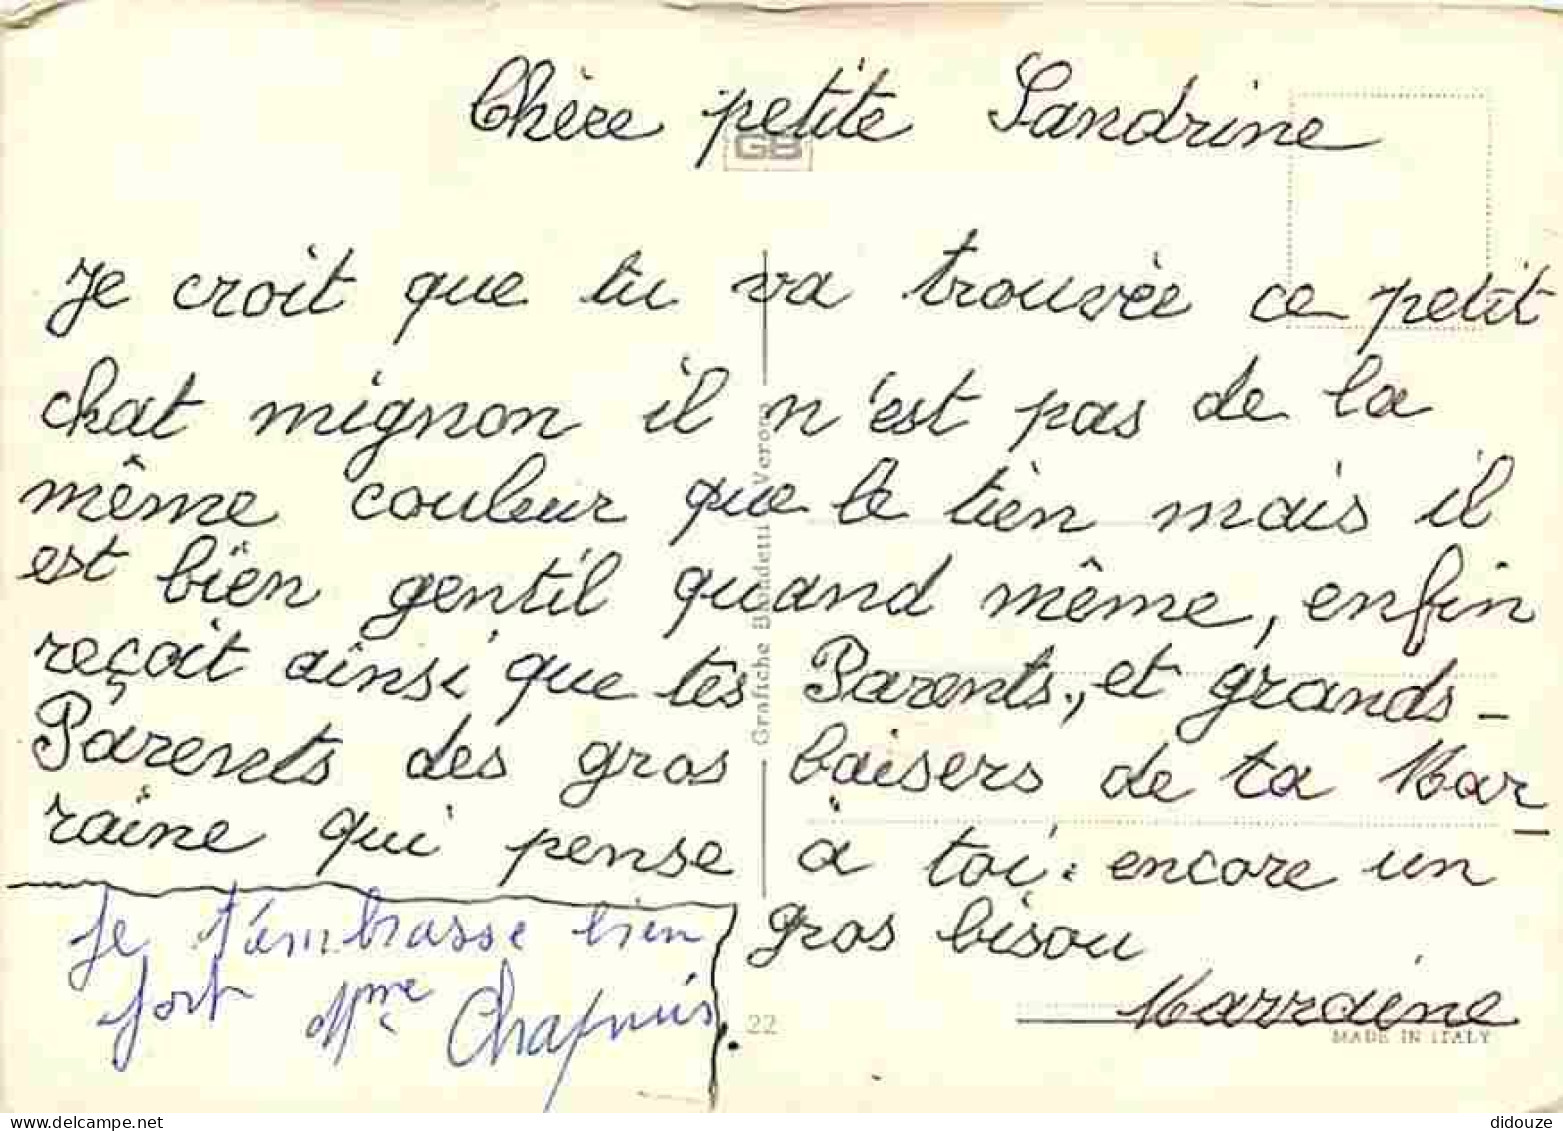 Chère petite Sandrine
GB
Je croit que tu va trouvée ce petit
chat mignon il n'est pas de la
même couleur que le tien mais il
est bien gentil quand même, enfin
reçoit ainsi que tes Parents, et grands-
Parents des gros baisers de ta Mar-
raine qui pense à toi. encore un
gros bisou
Marraine
Je t'embrasse bien
fort Mme Chapuis.
Grafiche Biondetti Verona
22
MADE IN ITALY
didouze